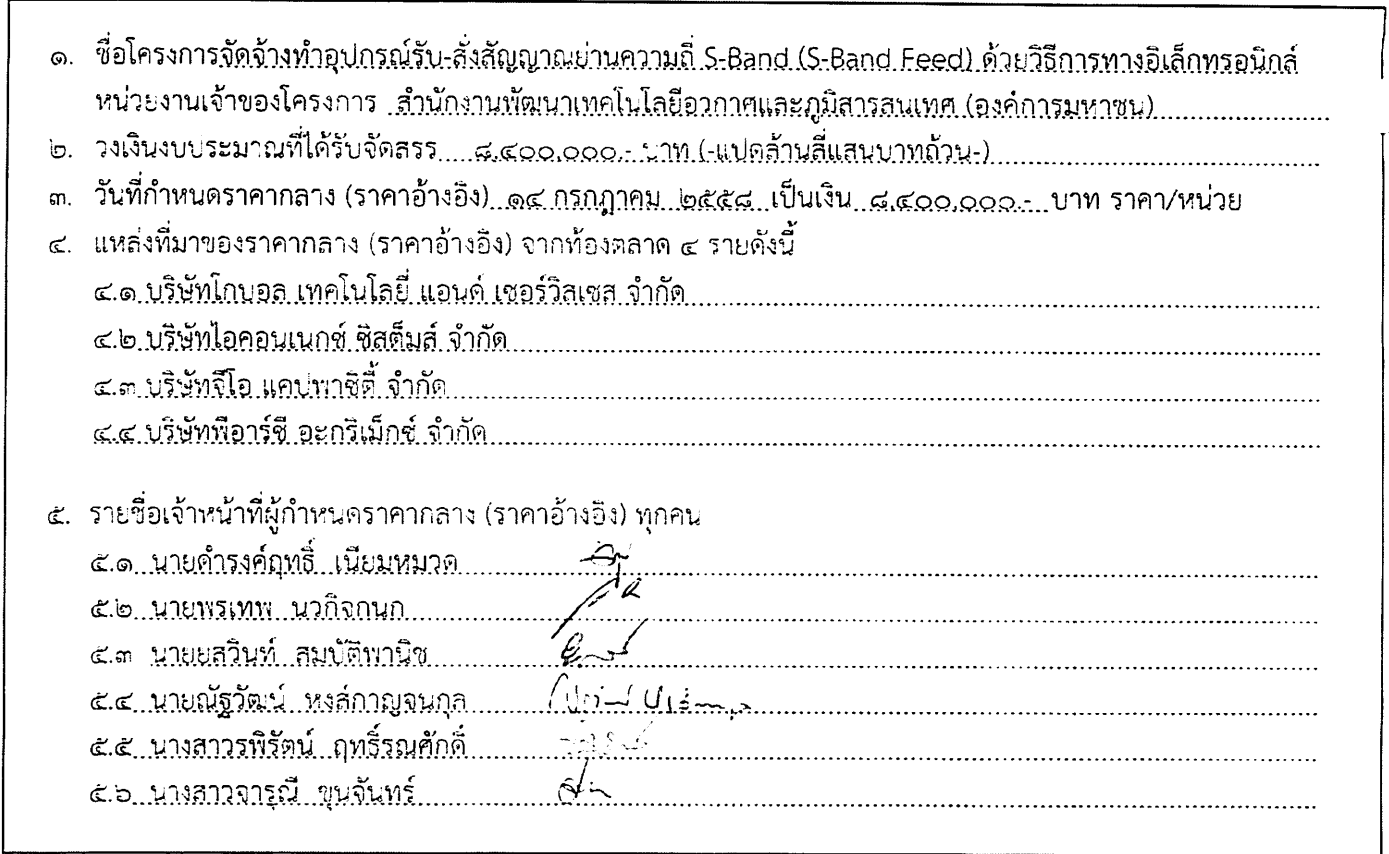 ๑. ชื่อโครงการจัดจ้างทำอุปกรณ์รับ-ส่งสัญญาณย่านความถี่ S-Band (S-Band Feed) ด้วยวิธีการทางอิเล็กทรอนิกส์
หน่วยงานเจ้าของโครงการ สำนักงานพัฒนาเทคโนโลยีอวกาศและภูมิสารสนเทศ (องค์การมหาชน)
๒. วงเงินงบประมาณที่ได้รับจัดสรร ๘,๔๐๐,๐๐๐.- บาท (-แปดล้านสี่แสนบาทถ้วน-)
๓. วันที่กำหนดราคากลาง (ราคาอ้างอิง) ๑๔ กรกฎาคม ๒๕๕๘ เป็นเงิน ๘,๔๐๐,๐๐๐.- บาท ราคา/หน่วย
๔. แหล่งที่มาของราคากลาง (ราคาอ้างอิง) จากท้องตลาด ๔ รายดังนี้
๔.๑ บริษัทโกบอล เทคโนโลยี่ แอนด์ เซอร์วิสเซส จำกัด
๔.๒ บริษัทไอคอนเนกซ์ ซิสต็มส์ จำกัด
๔.๓ บริษัทจีโอ แคปพาซิตี้ จำกัด
๔.๔ บริษัทพีอาร์ซี อะกริเม็กซ์ จำกัด
๕. รายชื่อเจ้าหน้าที่ผู้กำหนดราคากลาง (ราคาอ้างอิง) ทุกคน
๕.๑ นายดำรงค์ฤทธิ์ เนียมหมวด
๕.๒ นายพรเทพ นวกิจกนก
๕.๓ นายยสวินท์ สมบัติพานิช
๕.๔ นายณัฐวัฒน์ หงส์กาญจนกุล
๕.๕ นางสาวรพิรัตน์ ฤทธิ์รณศักดิ์
๕.๖ นางสาวจารุณี ขุนจันทร์